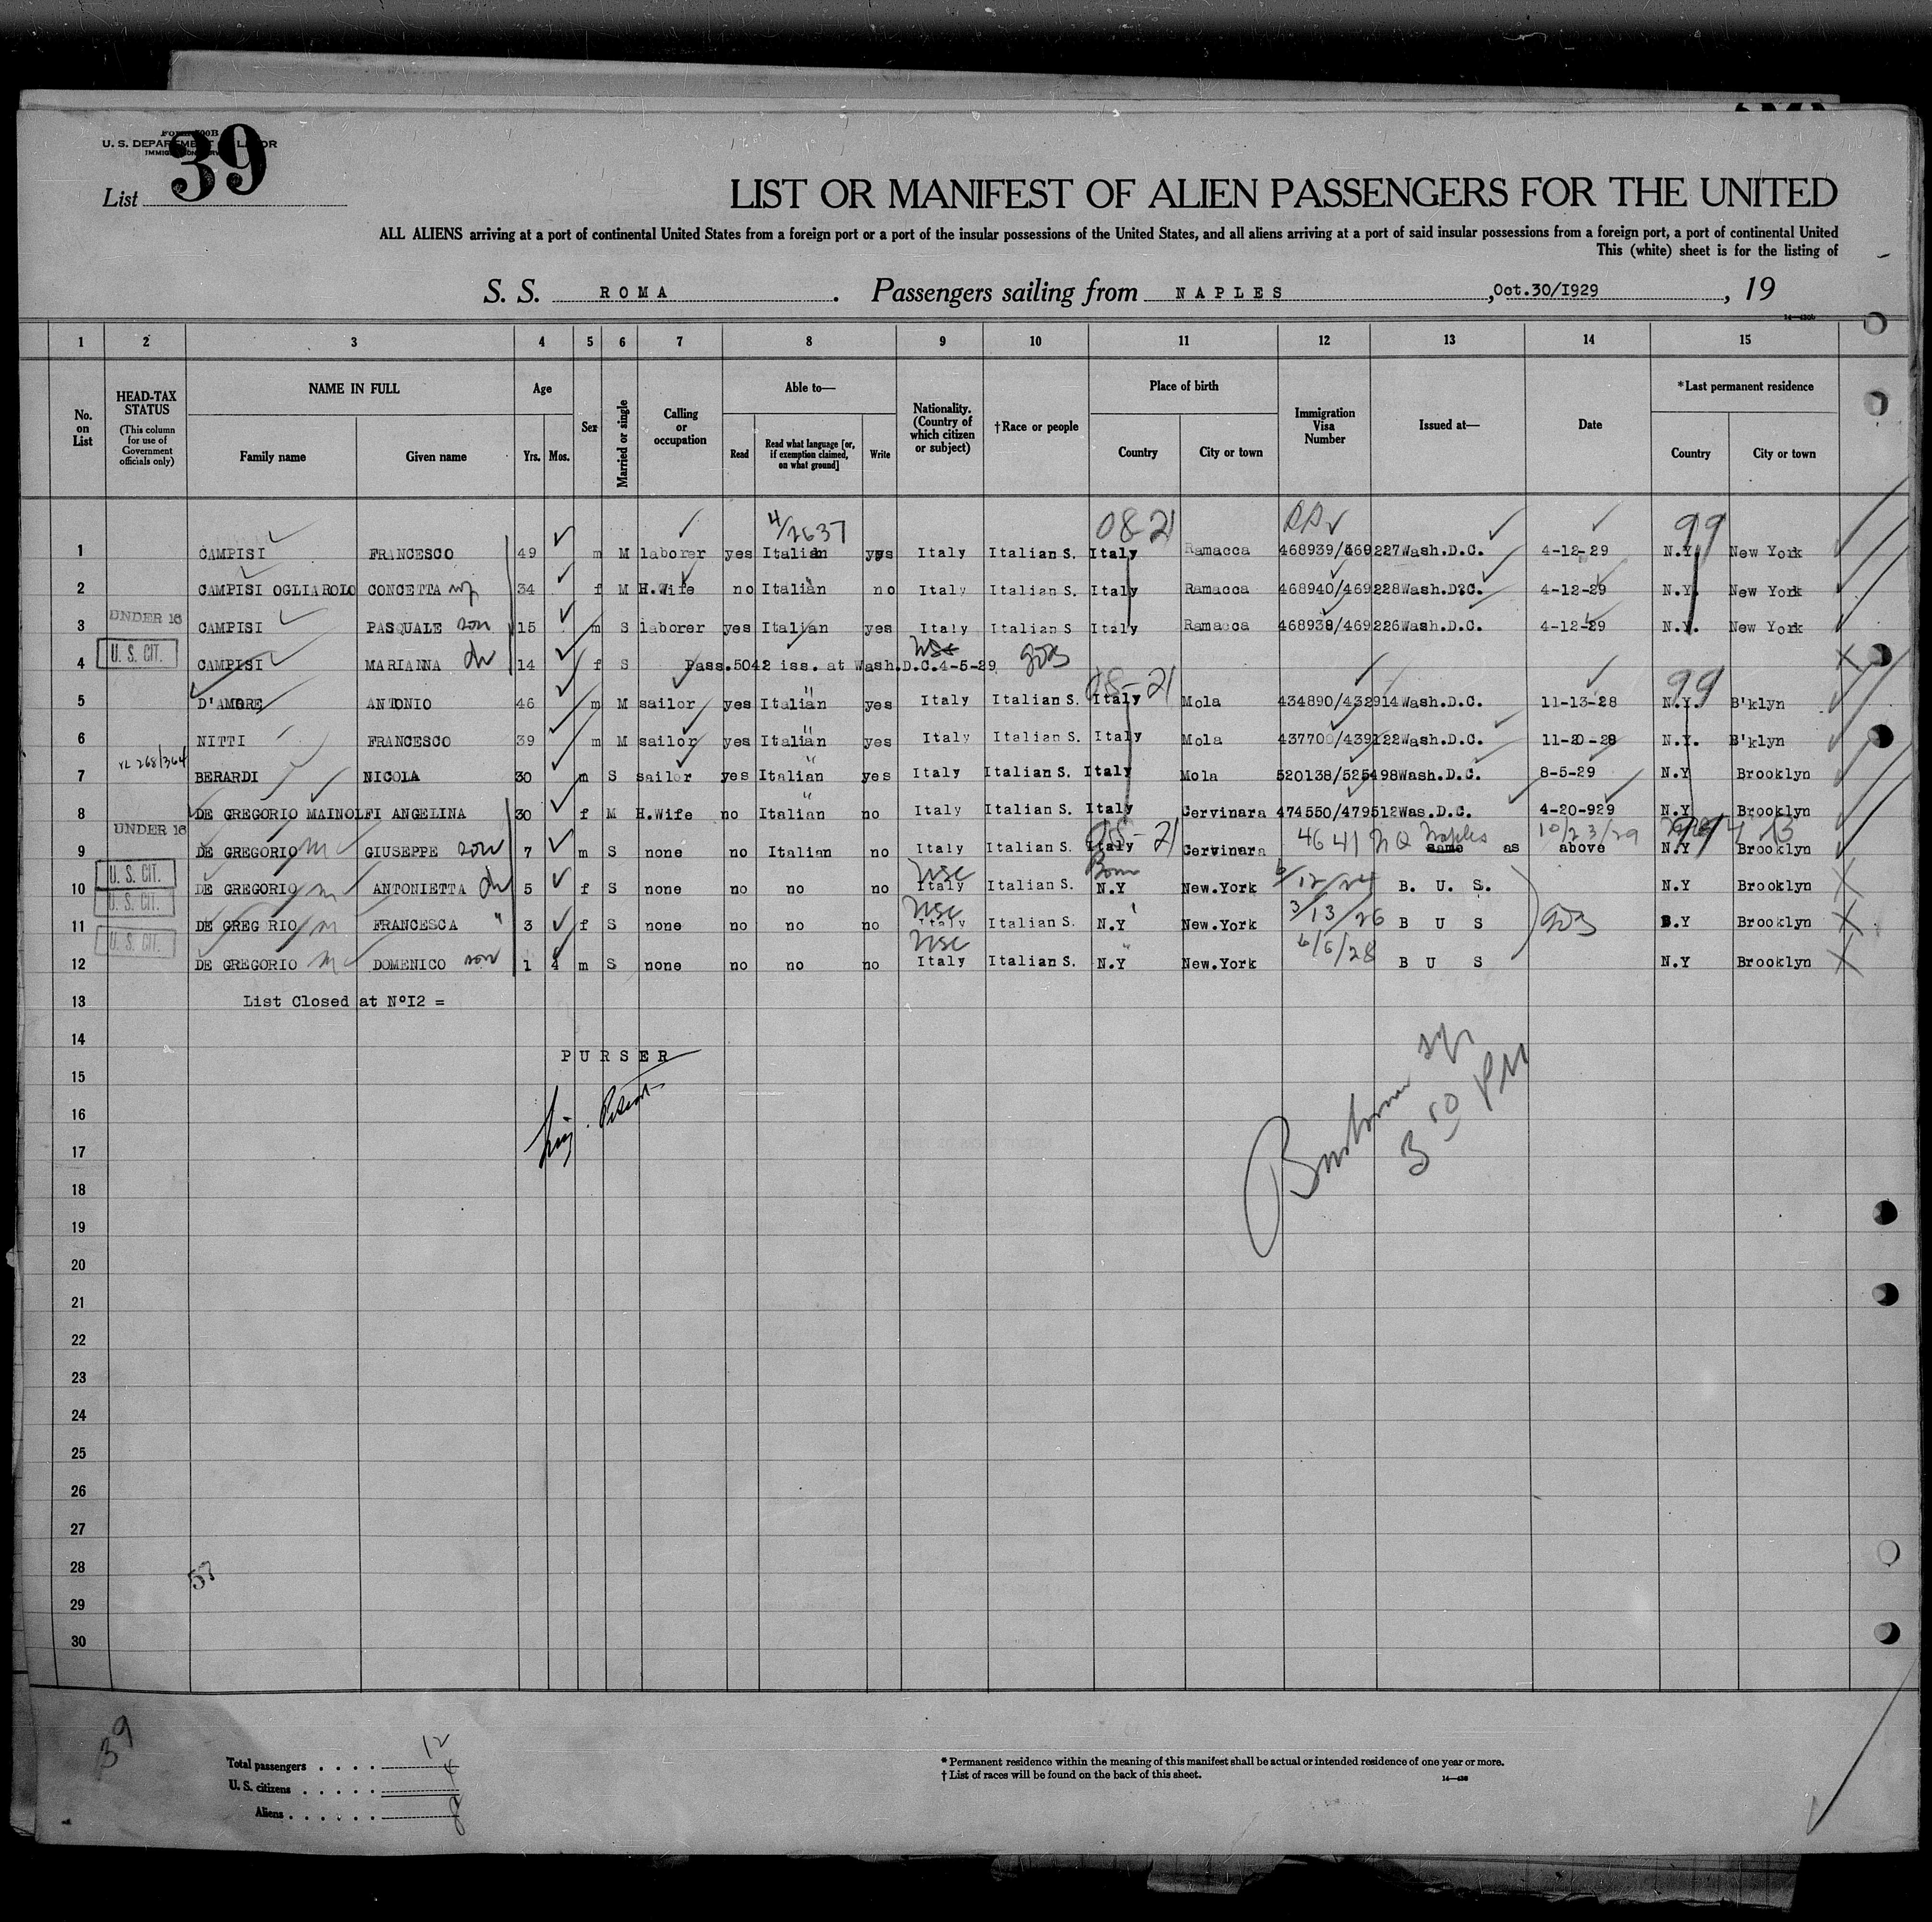 FORM 500B
U. S. DEPARTMENT OF LABOR
List 39
LIST OR MANIFEST OF ALIEN PASSENGERS FOR THE UNITED
ALL ALIENS arriving at a port of continental United States from a foreign port or a port of the insular possessions of the United States, and all aliens arriving at a port of said insular possessions from a foreign port, a port of continental United
This (white) sheet is for the listing of
S. S. ROMA . Passengers sailing from NAPLES ,Oct.30/1929 , 19
1 2 3 4 5 6 7 8 9 10 11 12 13 14 15
No. on List
HEAD-TAX STATUS (This column for use of Government officials only)
NAME IN FULL
Family name Given name
Age
Yrs. Mos.
Sex
Married or single
Calling or occupation
Able to—
Read
Read what language [or, if exemption claimed, on what ground]
Write
Nationality. (Country of which citizen or subject)
†Race or people
Place of birth
Country City or town
Immigration Visa Number
Issued at—
Date
*Last permanent residence
Country City or town
4/2637 0821 99
1 CAMPISI FRANCESCO 49 m M laborer yes Italian yes Italy Italian S. Italy Ramacca 468939/469227 Wash.D.C. 4-12-29 N.Y. New York
2 CAMPISI OGLIAROLO CONCETTA 34 f M H.Wife no Italian no Italy Italian S. Italy Ramacca 468940/469228 Wash.D.C. 4-12-29 N.Y. New York
UNDER 16
3 CAMPISI PASQUALE son 15 m S laborer yes Italian yes Italy Italian S Italy Ramacca 468938/469226 Wash.D.C. 4-12-29 N.Y. New York
U. S. CIT. USC
4 CAMPISI MARIANNA 14 f S Pass.5042 iss. at Wash.D.C.4-5-29
08-21 99
5 D'AMORE ANTONIO 46 m M sailor yes Italian yes Italy Italian S. Italy Mola 434890/432914 Wash.D.C. 11-13-28 N.Y. B'klyn
6 NITTI FRANCESCO 39 m M sailor yes Italian yes Italy Italian S. Italy Mola 437700/439122 Wash.D.C. 11-20-28 N.Y. B'klyn
7 BERARDI NICOLA 30 m S sailor yes Italian yes Italy Italian S. Italy Mola 520138/525498 Wash.D.C. 8-5-29 N.Y Brooklyn
8 DE GREGORIO MAINOLFI ANGELINA 30 f M H.Wife no Italian no Italy Italian S. Italy Cervinara 474550/479512 Was.D.C. 4-20-929 N.Y Brooklyn
UNDER 16 4641 NQ Naples 10/23/29
9 DE GREGORIO GIUSEPPE son 7 m S none no Italian no Italy Italian S. Italy Cervinara same as above N.Y Brooklyn
U. S. CIT. USC Born 6/12/24
10 DE GREGORIO ANTONIETTA 5 f S none no no no Italy Italian S. N.Y New.York B. U. S. N.Y Brooklyn
U. S. CIT. USC 3/13/26
11 DE GREG RIO FRANCESCA " 3 f S none no no no Italy Italian S. N.Y New.York B U S N.Y Brooklyn
U. S. CIT. USC 6/6/28
12 DE GREGORIO DOMENICO son 1 4 m S none no no no Italy Italian S. N.Y New.York B U S N.Y Brooklyn
13 List Closed at N°I2 =
14 PURSER
15
16
17
18
19
20
21
22
23
24
25
26
27
28
29
30
39
Total passengers . . . . 12
U. S. citizens . . . . . 4
Aliens . . . . . . 8
* Permanent residence within the meaning of this manifest shall be actual or intended residence of one year or more.
† List of races will be found on the back of this sheet.